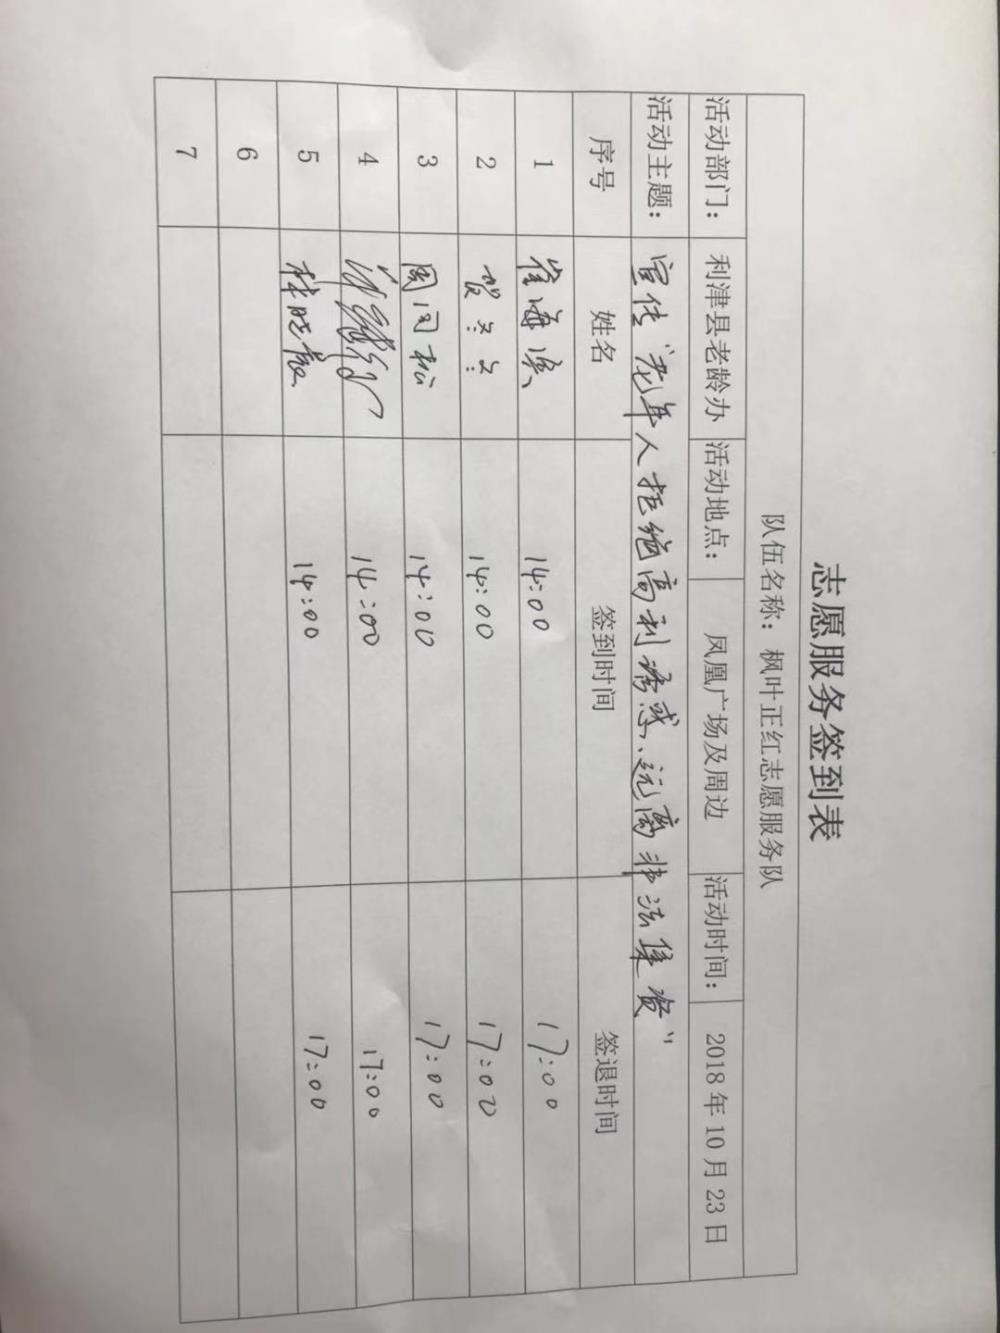 志愿服务签到表
队伍名称：枫叶正红志愿服务队
活动部门： 利津县老龄办 活动地点： 凤凰广场及周边 活动时间： 2018年10月23日
活动主题： 宣传“老年人拒绝高利诱惑、远离非法集资”
序号 姓名 签到时间 签退时间
1 崔海滨 14:00 17:00
2 贺文文 14:00 17:00
3 周同松 14:00 17:00
4 14:00 17:00
5 14:00 17:00
6
7